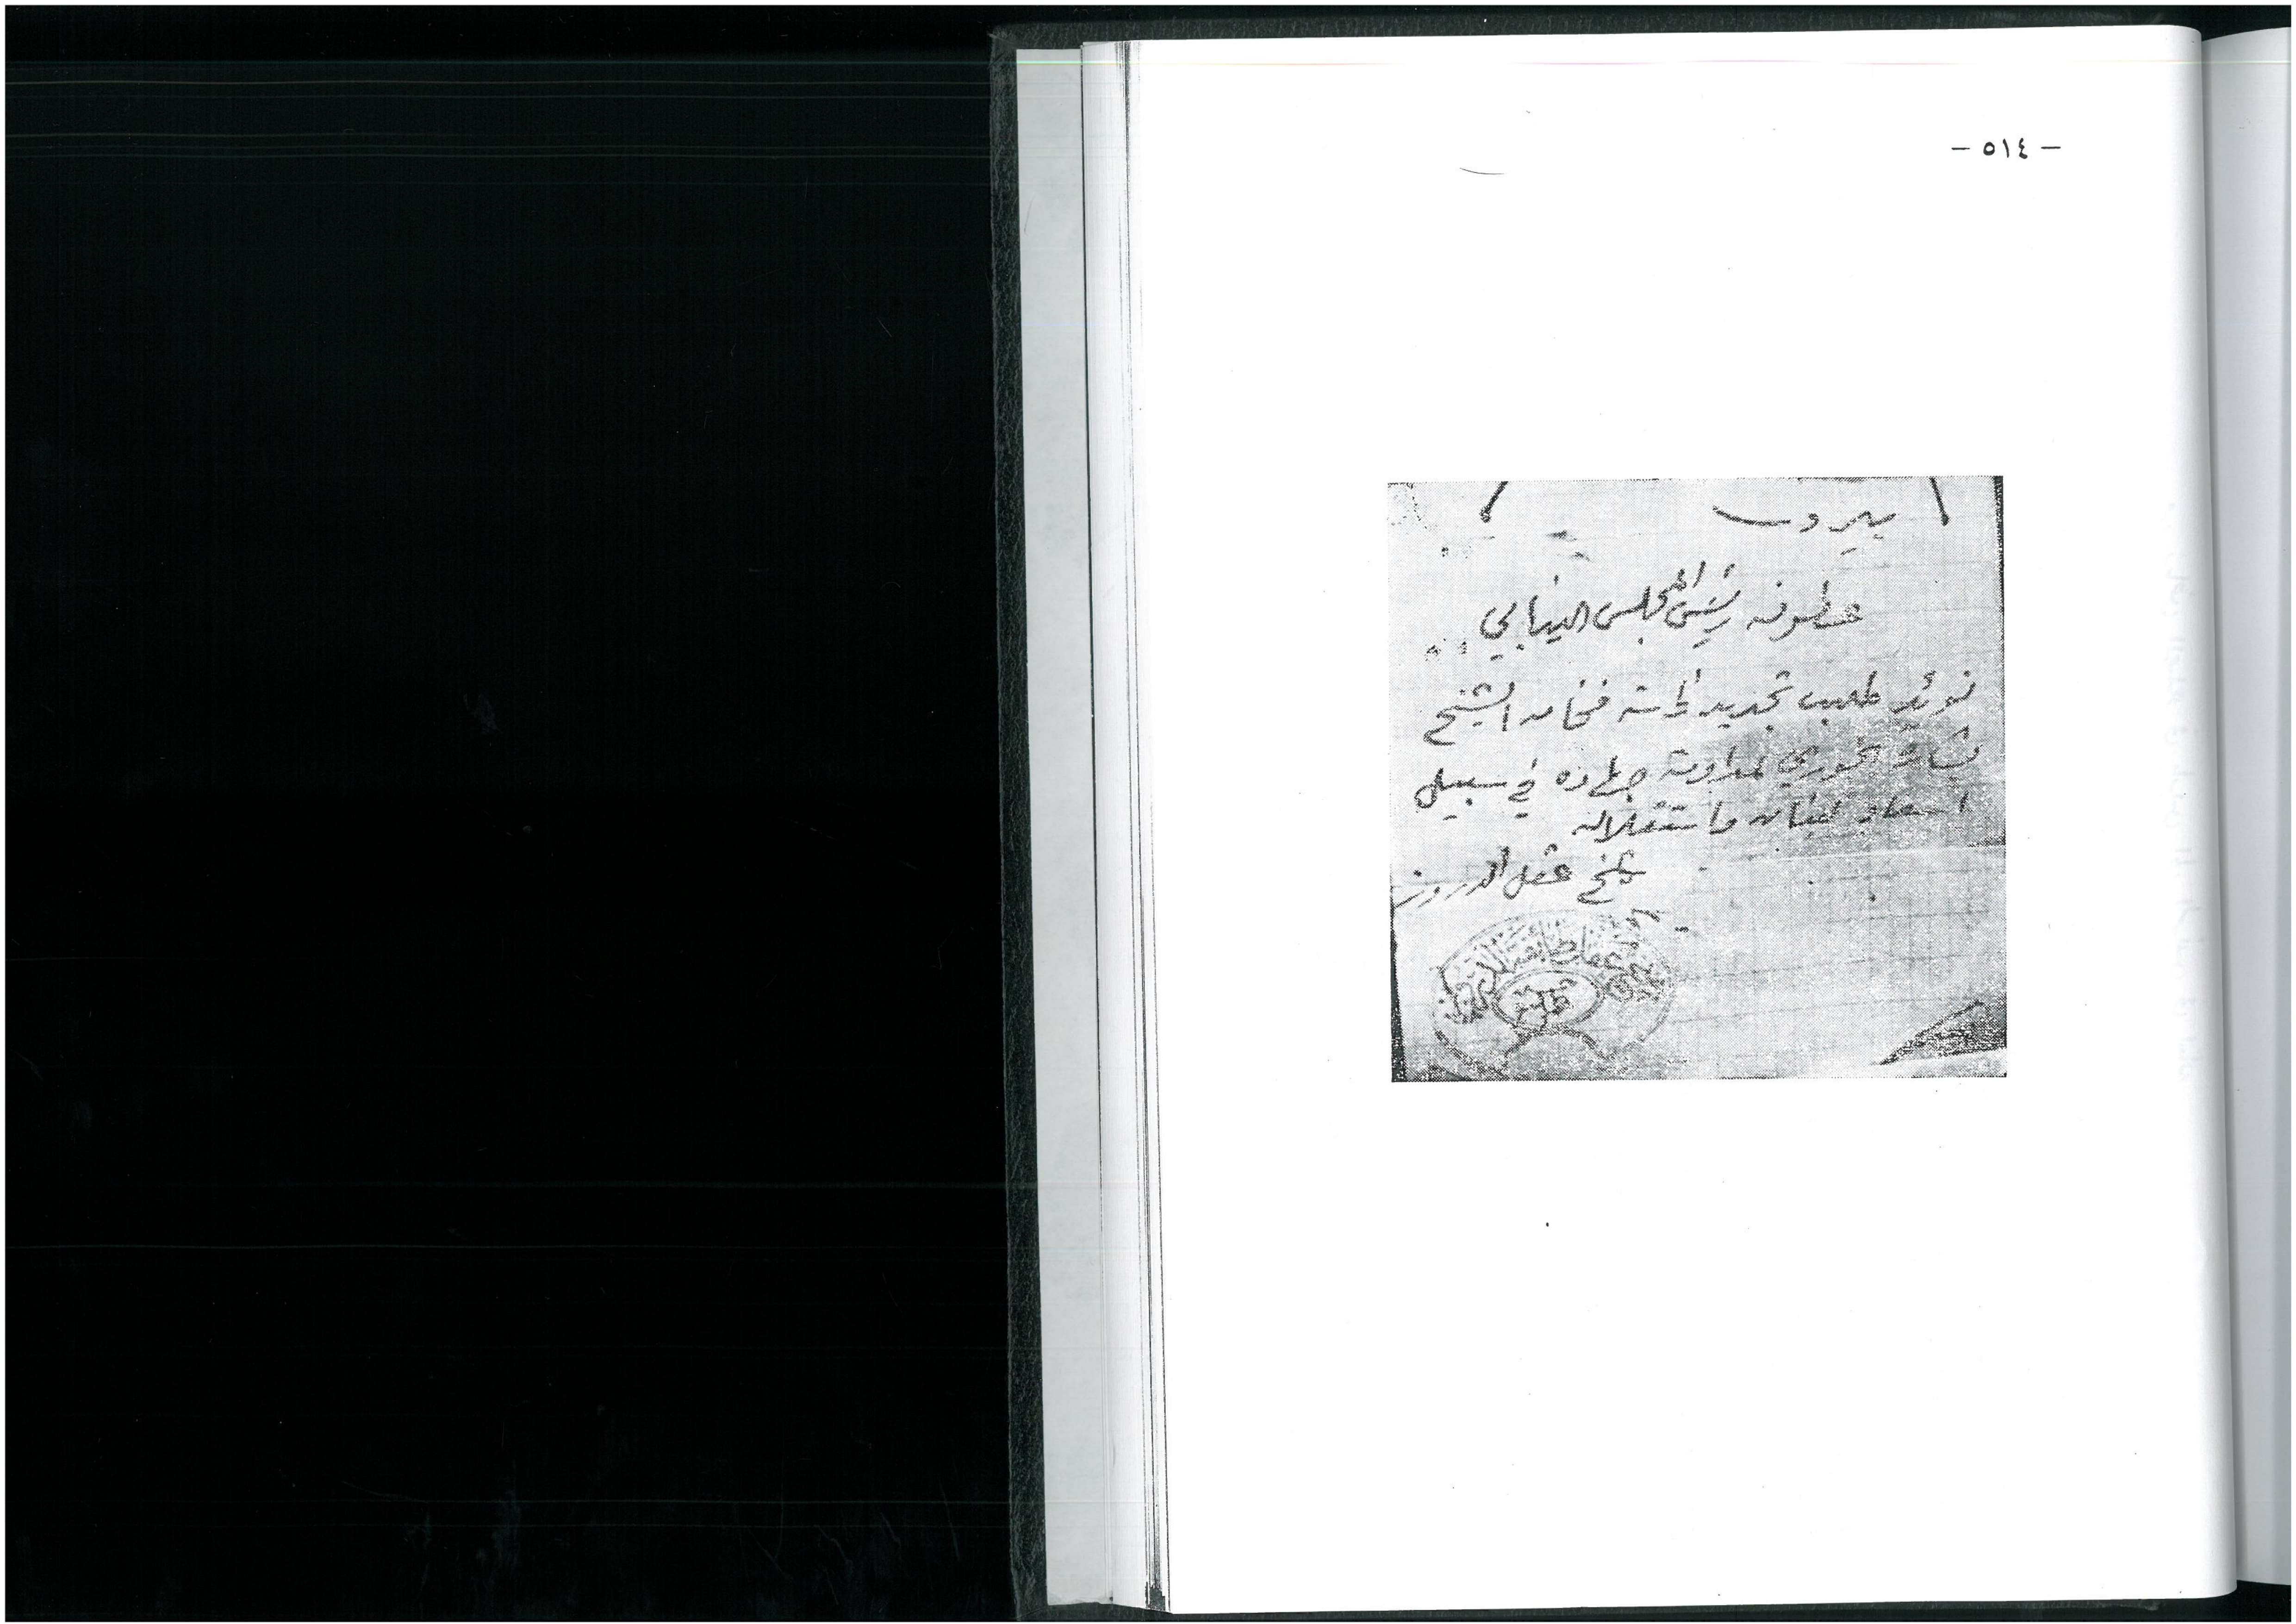 - ٥١٤ -
بيروت
عطوفة رئيس المجلس النيابي
نؤيد طلب تجديد رئاسة فخامة الشيخ
بشارة الخوري لمداومة جهاده في سبيل
اسعاد لبنان واستقلاله
شيخ عقل الدروز